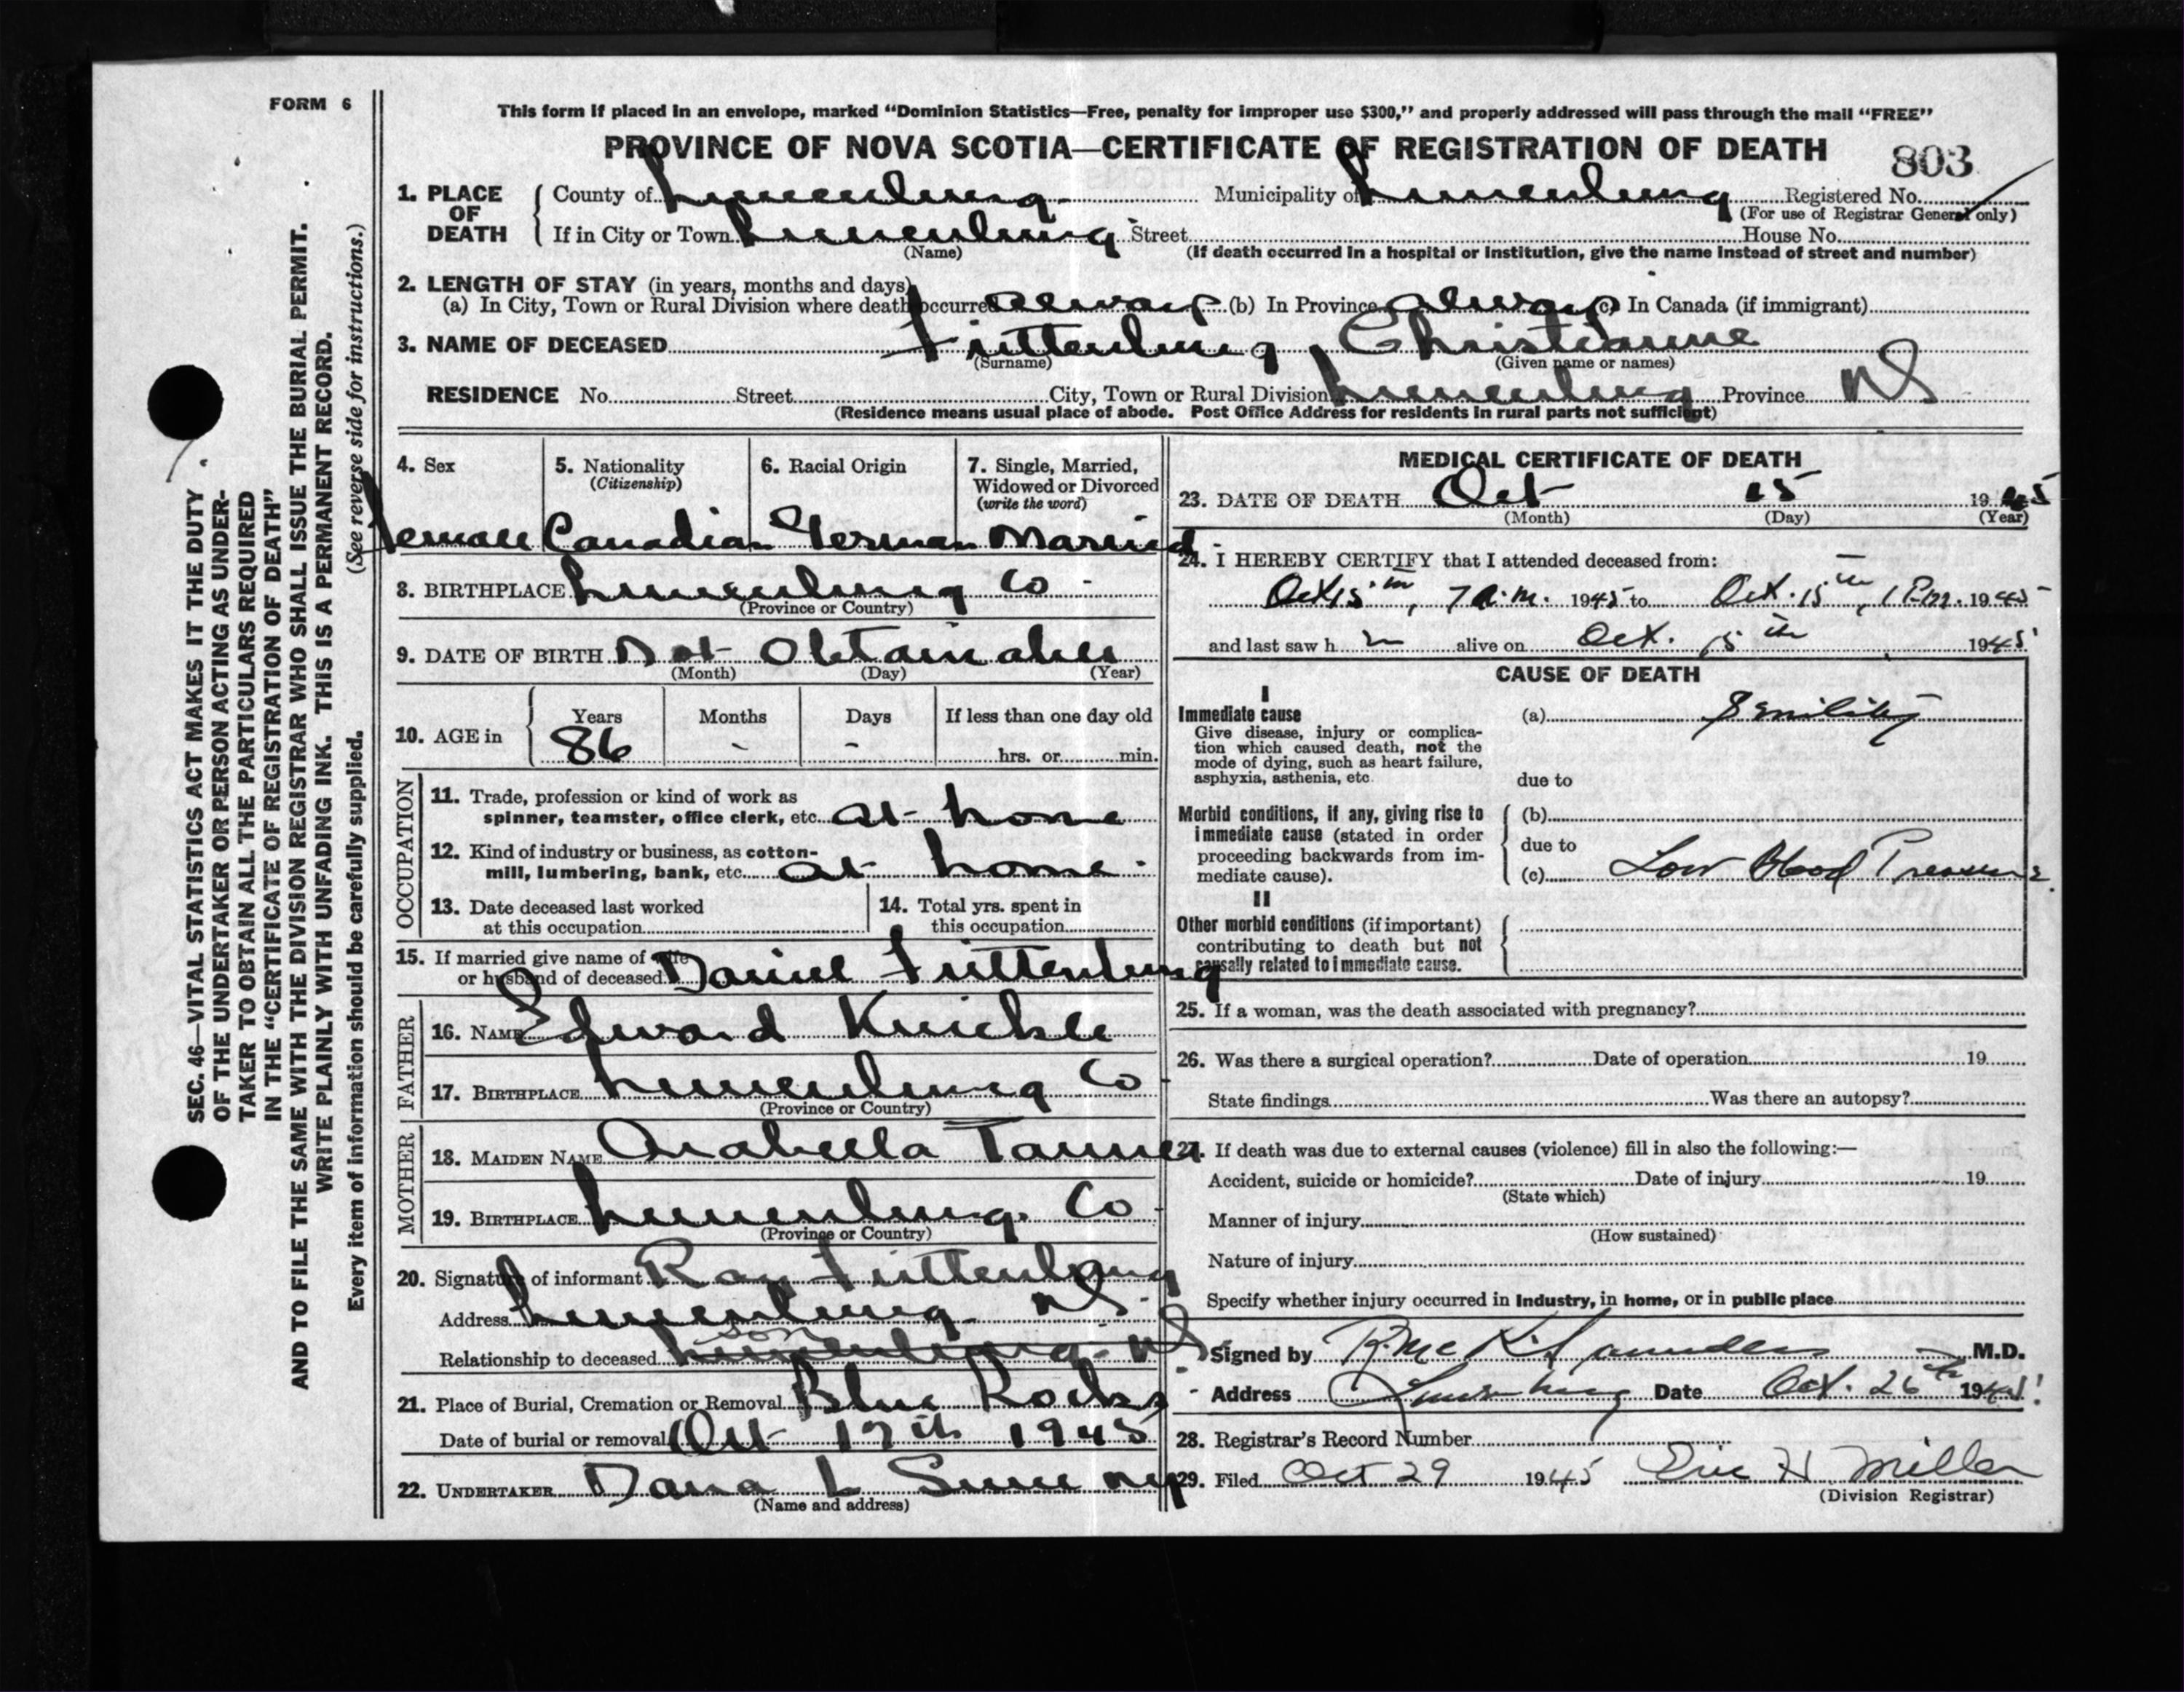 FORM 6
This form if placed in an envelope, marked “Dominion Statistics—Free, penalty for improper use $300,” and properly addressed will pass through the mail “FREE”
PROVINCE OF NOVA SCOTIA—CERTIFICATE OF REGISTRATION OF DEATH
803
1. PLACE OF DEATH County of Lunenburg Municipality of Lunenburg Registered No.
(For use of Registrar General only)
If in City or Town Lunenburg Street House No.
(Name) (If death occurred in a hospital or institution, give the name instead of street and number)
2. LENGTH OF STAY (in years, months and days)
(a) In City, Town or Rural Division where death occurred always (b) In Province always (c) In Canada (if immigrant)
3. NAME OF DECEASED Tuttenburg, Christianne
(Surname) (Given name or names)
RESIDENCE No. Street City, Town or Rural Division Lunenburg Province NS
(Residence means usual place of abode. Post Office Address for residents in rural parts not sufficient)
4. Sex
Female
5. Nationality
(Citizenship)
Canadian
6. Racial Origin
German
7. Single, Married,
Widowed or Divorced
(write the word)
Married
8. BIRTHPLACE Lunenburg Co
(Province or Country)
9. DATE OF BIRTH Not Obtainable
(Month) (Day) (Year)
10. AGE in Years Months Days If less than one day old
86 - - hrs. or min.
OCCUPATION
11. Trade, profession or kind of work as
spinner, teamster, office clerk, etc. at home
12. Kind of industry or business, as cotton-
mill, lumbering, bank, etc. at home
13. Date deceased last worked
at this occupation
14. Total yrs. spent in
this occupation
15. If married give name of wife
or husband of deceased Daniel Tuttenburg
FATHER
16. NAME Edward Knickle
17. BIRTHPLACE Lunenburg Co
(Province or Country)
MOTHER
18. MAIDEN NAME Arabella Tanner
19. BIRTHPLACE Lunenburg Co
(Province or Country)
20. Signature of informant Ray Tuttenburg
Address Lunenburg NS
son
Relationship to deceased Lunenburg NS
21. Place of Burial, Cremation or Removal Blue Rocks
Date of burial or removal Oct 17th 1945
22. UNDERTAKER Dana L
(Name and address)
MEDICAL CERTIFICATE OF DEATH
23. DATE OF DEATH Oct 15 1945
(Month) (Day) (Year)
24. I HEREBY CERTIFY that I attended deceased from:
Oct 15th, 7 A.m. 1945 to Oct. 15th, 1 P.m. 1945
and last saw h alive on Oct. 15th 1945
CAUSE OF DEATH
I
Immediate cause
Give disease, injury or complica-
tion which caused death, not the
mode of dying, such as heart failure,
asphyxia, asthenia, etc.
(a) Senility
due to
Morbid conditions, if any, giving rise to
immediate cause (stated in order
proceeding backwards from im-
mediate cause).
(b)
due to
(c) Low Blood Pressure
II
Other morbid conditions (if important)
contributing to death but not
causally related to immediate cause.
25. If a woman, was the death associated with pregnancy?
26. Was there a surgical operation? Date of operation 19
State findings Was there an autopsy?
27. If death was due to external causes (violence) fill in also the following:—
Accident, suicide or homicide? Date of injury 19
(State which)
Manner of injury
(How sustained)
Nature of injury
Specify whether injury occurred in Industry, in home, or in public place
Signed by R. Mc K. Saunders M.D.
Address Lunenburg Date Oct. 26th 1945
28. Registrar's Record Number
29. Filed Oct 29 1945 Eric H. Miller
(Division Registrar)
SEC. 46—VITAL STATISTICS ACT MAKES IT THE DUTY
OF THE UNDERTAKER OR PERSON ACTING AS UNDER-
TAKER TO OBTAIN ALL THE PARTICULARS REQUIRED
IN THE “CERTIFICATE OF REGISTRATION OF DEATH”
AND TO FILE THE SAME WITH THE DIVISION REGISTRAR WHO SHALL ISSUE THE BURIAL PERMIT.
WRITE PLAINLY WITH UNFADING INK. THIS IS A PERMANENT RECORD.
Every item of information should be carefully supplied. (See reverse side for instructions.)